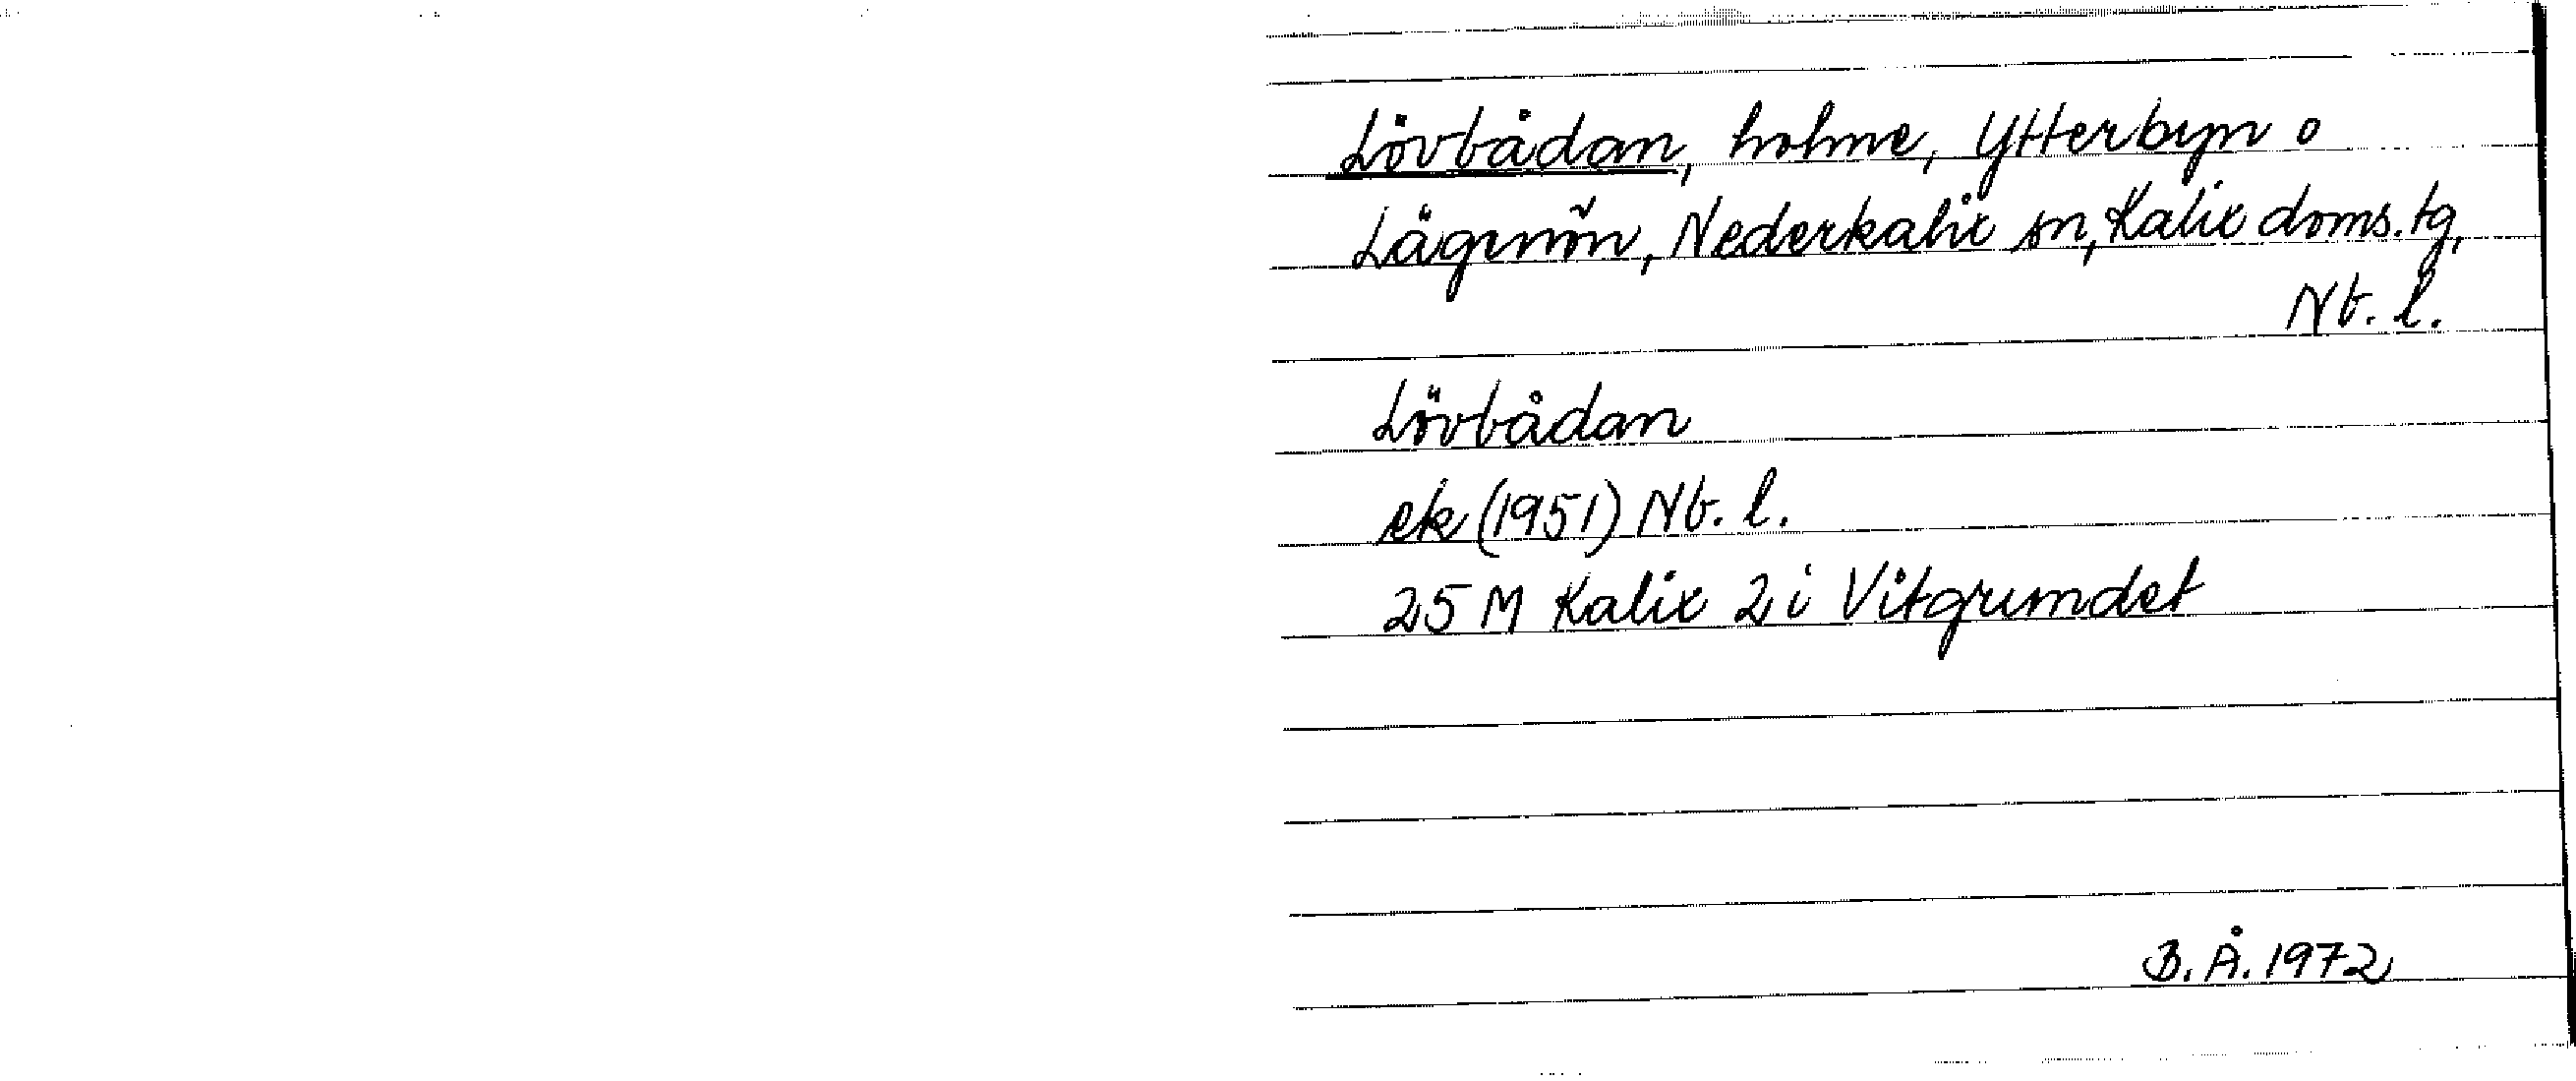 Lövbådan, holme, Ytterbyn o
Lägenön, Nederkalix sn, Kalix doms. tg,
Nb. l.
Lövbådan
ek (1951) Nb. l.
25 M Kalix 2 i Vitgrundet
B. Å. 1972